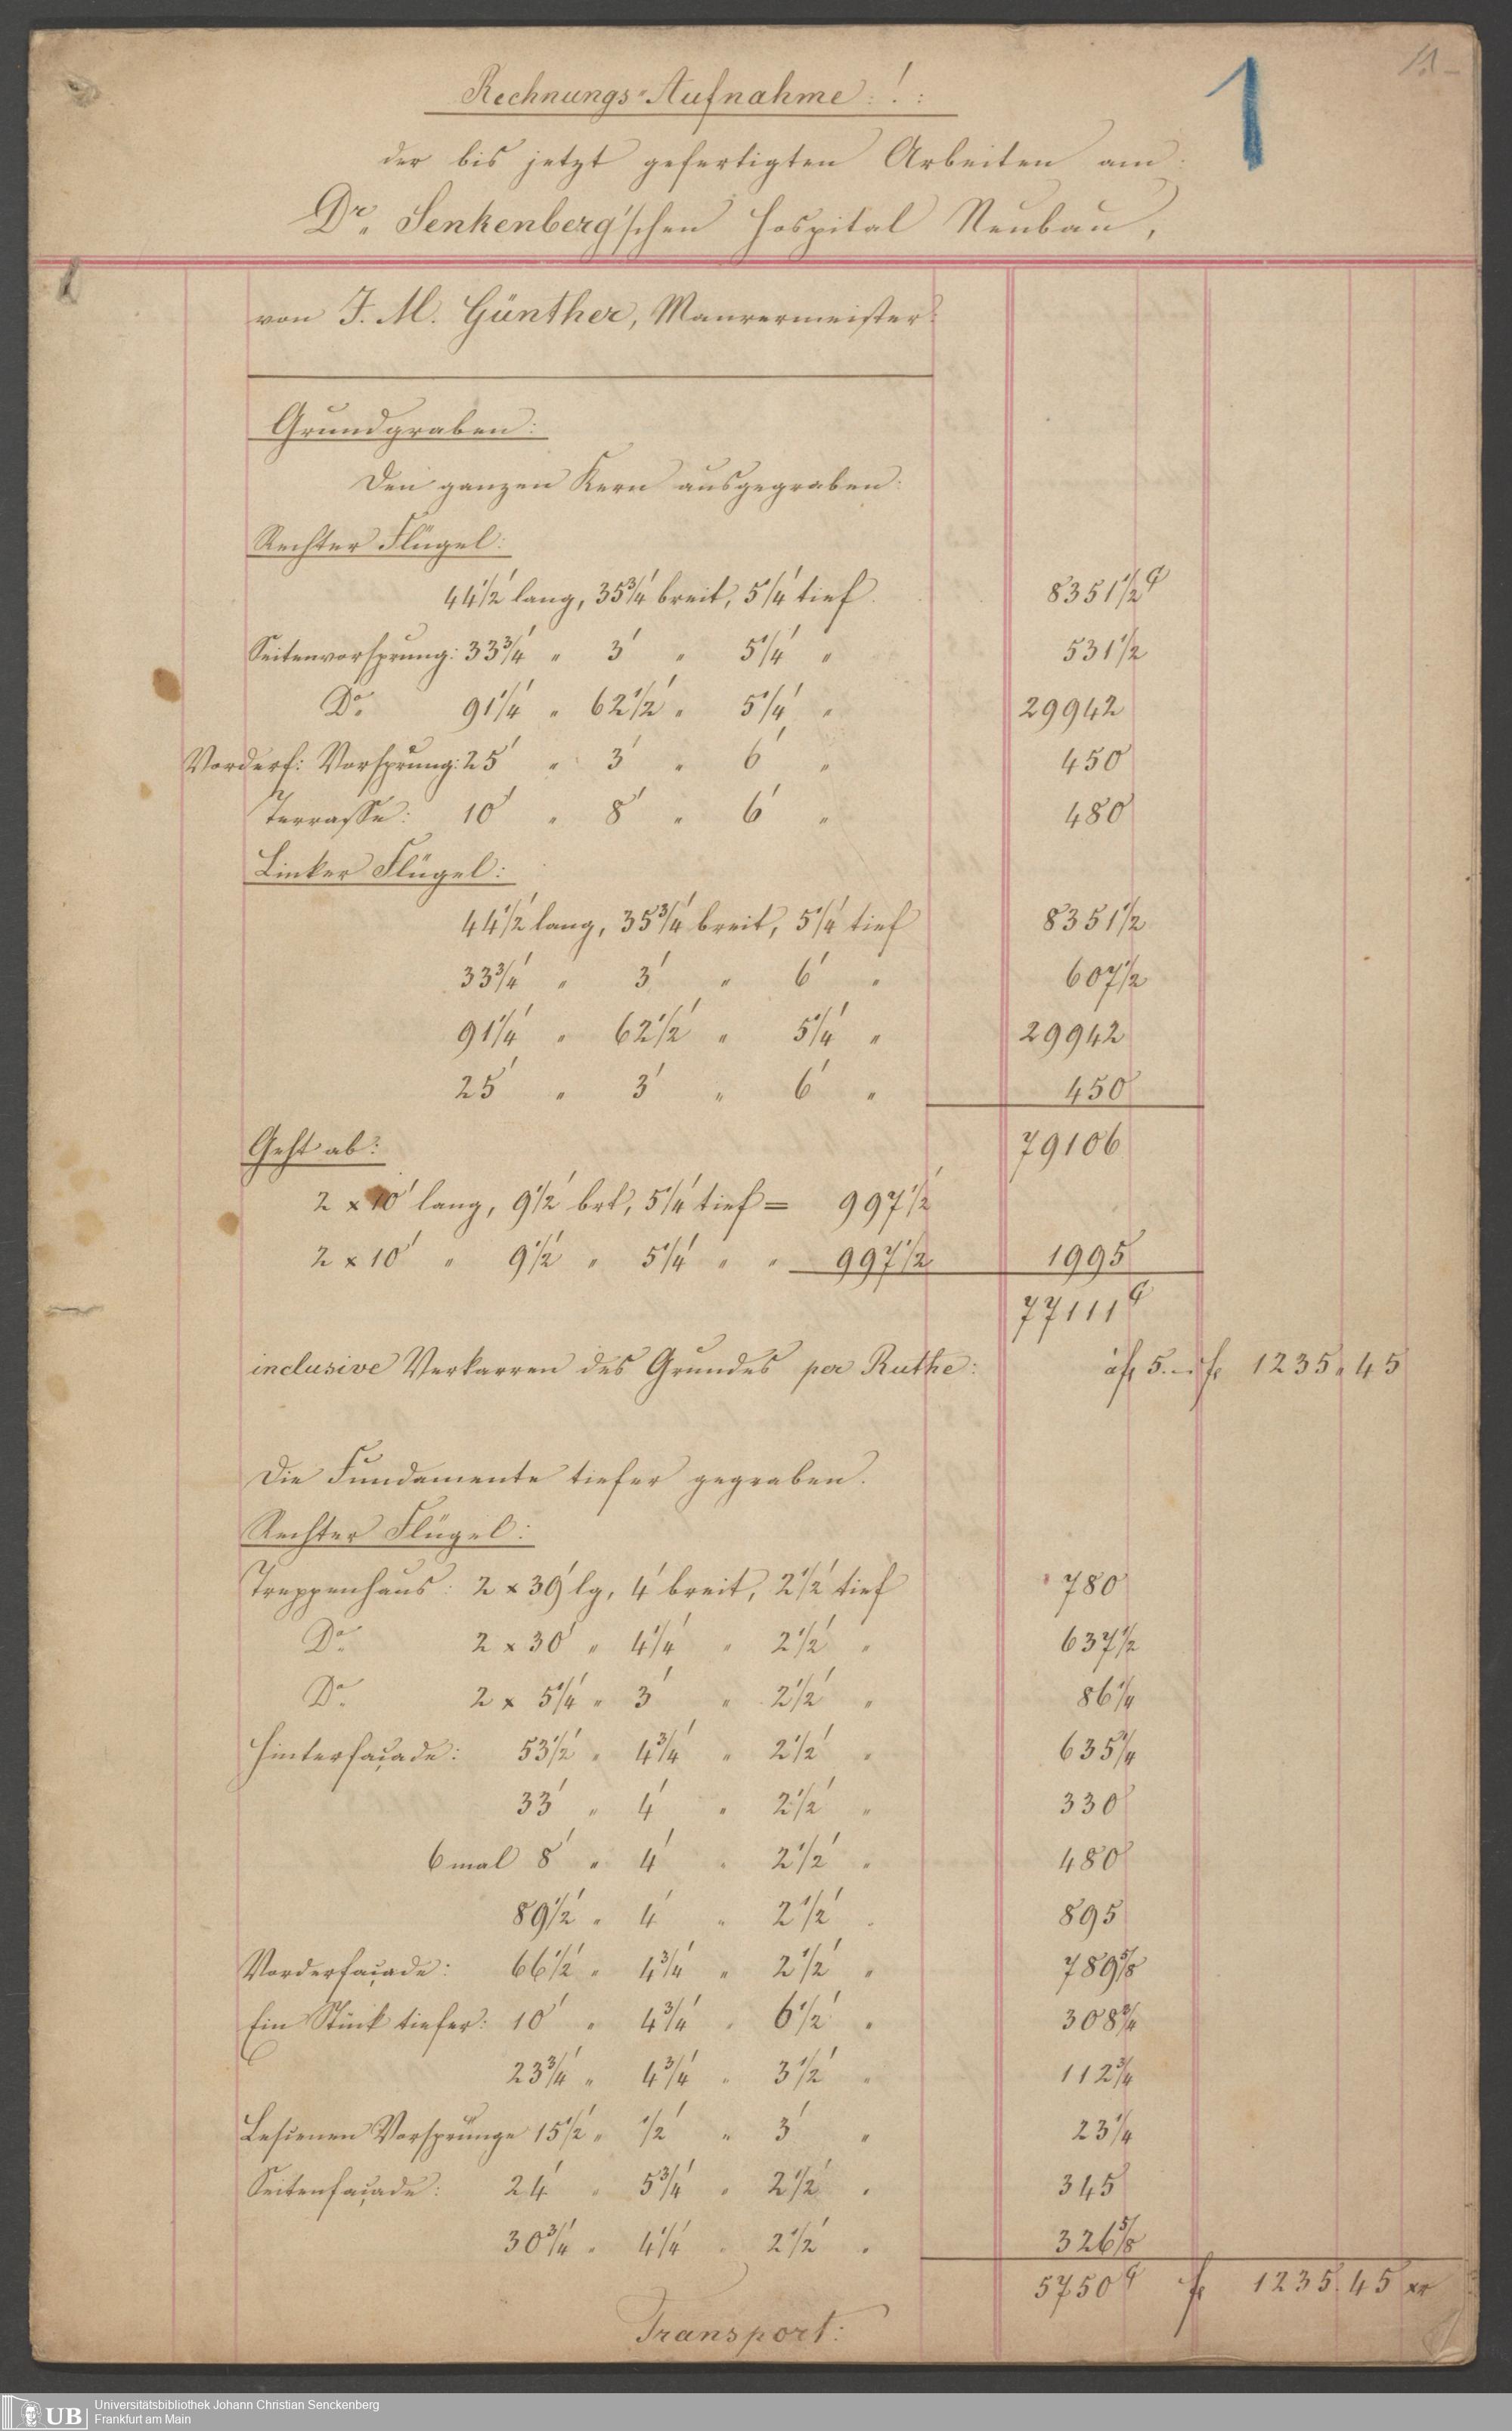 1
Rechnungs-Aufnahme:!:
der bis jetzt gefertigten Arbeiten am:
Dr. Senkenberg'schen Hospital Neubau,
von J. M. Günther, Maurermeister:
Grundgraben:
Den ganzen Kern ausgegraben:
Rechter Flügel:
44½' lang, 35¾' breit, 5¼' tief. 8351½
Seitenvorsprung: 33¾' " 3' " 5¼' " 531½
Do. 91¼' " 62½' " 5¼' " 29942
Vorderf: Vorsprung: 25' " 3' " 6' " 450
Terrasse: 10' " 8' " 6' " 480
Linker Flügel:
44½' lang, 35¾' breit, 5¼' tief 8351½
33¾' " 3' " 6' " 607½
91¼' " 62½' " 5¼' " 29942
25' " 3' " 6' " 450
Geht ab: 79106
2 x 10' lang, 9½' brt, 5¼' tief = 997½
2 x 10' " 9½' " 5¼' " " 997½ 1995
77111
inclusive Verkarren des Grundes per Ruthe: à f 5.— f 1235 " 45
Die Fundamente tiefer gegraben.
Rechter Flügel:
Treppenhaus: 2 x 39' lg, 4' breit, 2½' tief 780
Do. 2 x 30' " 4¼' " 2½' " 637½
Do. 2 x 5¾' " 3' " 2½' " 86¼
Hinterfaçade: 53½' " 4¾' " 2½' " 635¼
33' " 4' " 2½' " 330
6 mal 8' " 4' " 2½' " 480
89½' " 4' " 2½' " 895
Vorderfaçade: 66½' " 4¾' " 2½' " 789⅝
Ein Stück tiefer: 10' " 4¾' " 6½' " 308¾
23¾' " 4¾' " 3½' " 112¾
Lesienen Vorsprünge 15½' " ½' " 3' " 23¼
Seitenfaçade: 24' " 5¾' " 2½' " 345
30¾' " 4¼' " 2½' " 326⅝
5750 f 1235. 45 xr
Transport:
UB
Universitätsbibliothek Johann Christian Senckenberg
Frankfurt am Main